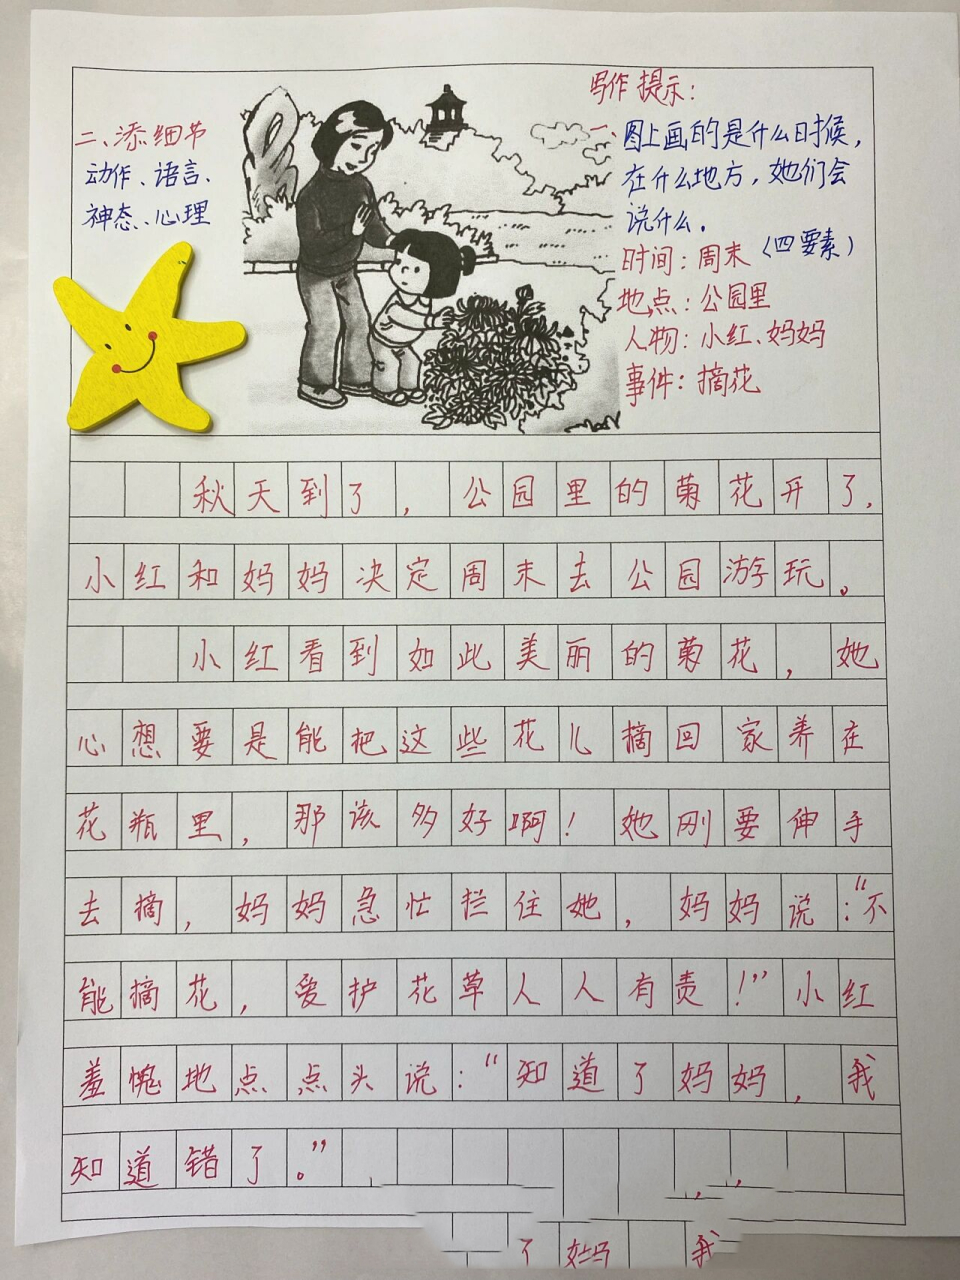 写作提示：
一、图上画的是什么时候，
在什么地方，她们会
说什么。
（四要素）
时间：周末
地点：公园里
人物：小红、妈妈
事件：摘花
二、添细节
动作、语言、
神态、心理
秋天到了，公园里的菊花开了，
小红和妈妈决定周末去公园游玩。
小红看到如此美丽的菊花，她
心想要是能把这些花儿摘回家养在
花瓶里，那该多好啊！她刚要伸手
去摘，妈妈急忙拦住她，妈妈说：“不
能摘花，爱护花草人人有责！”小红
羞愧地点点头说：“知道了妈妈，我
知道错了。”
了妈 我